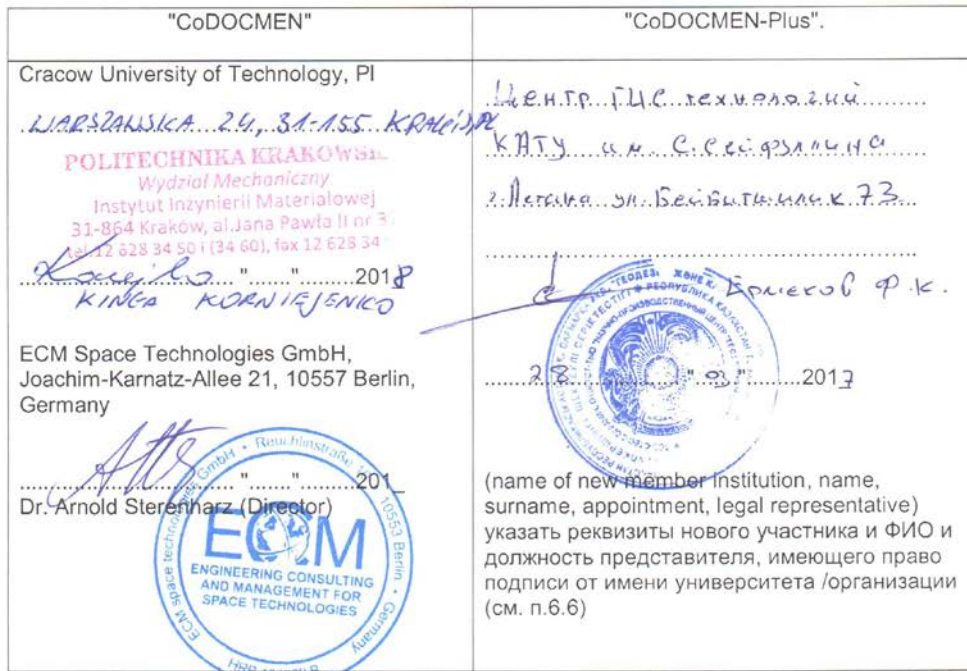 "CoDOCMEN"
Cracow University of Technology, Pl
WARSZAWSKA 24, 31-155 KRAKÓW, PL
POLITECHNIKA KRAKOWSK
Wydział Mechaniczny
Instytut Inżynierii Materiałowej
31-864 Kraków, al.Jana Pawła II nr 3
tel. 12 628 34 50 i (34 60), fax 12 628 34
"......"........2018
KINGA KORNIEJENKO
ECM Space Technologies GmbH,
Joachim-Karnatz-Allee 21, 10557 Berlin,
Germany
"......."........201_
Dr. Arnold Sterenharz (Director)
ECM space technologies GmbH • Reuchlinstraße 10553 Berlin • Germany
ECM
ENGINEERING CONSULTING
AND MANAGEMENT FOR
SPACE TECHNOLOGIES
HRB
"CoDOCMEN-Plus".
Центр ГИС технологий
КАТУ им. С.Сейфуллина
г. Астана ул. Бейбитшилик 73
Ермеков Ф.К.
РЕСПУБЛИКА КАЗАХСТАН
28 "03" 2017
(name of new member institution, name,
surname, appointment, legal representative)
указать реквизиты нового участника и ФИО и
должность представителя, имеющего право
подписи от имени университета /организации
(см. п.6.6)